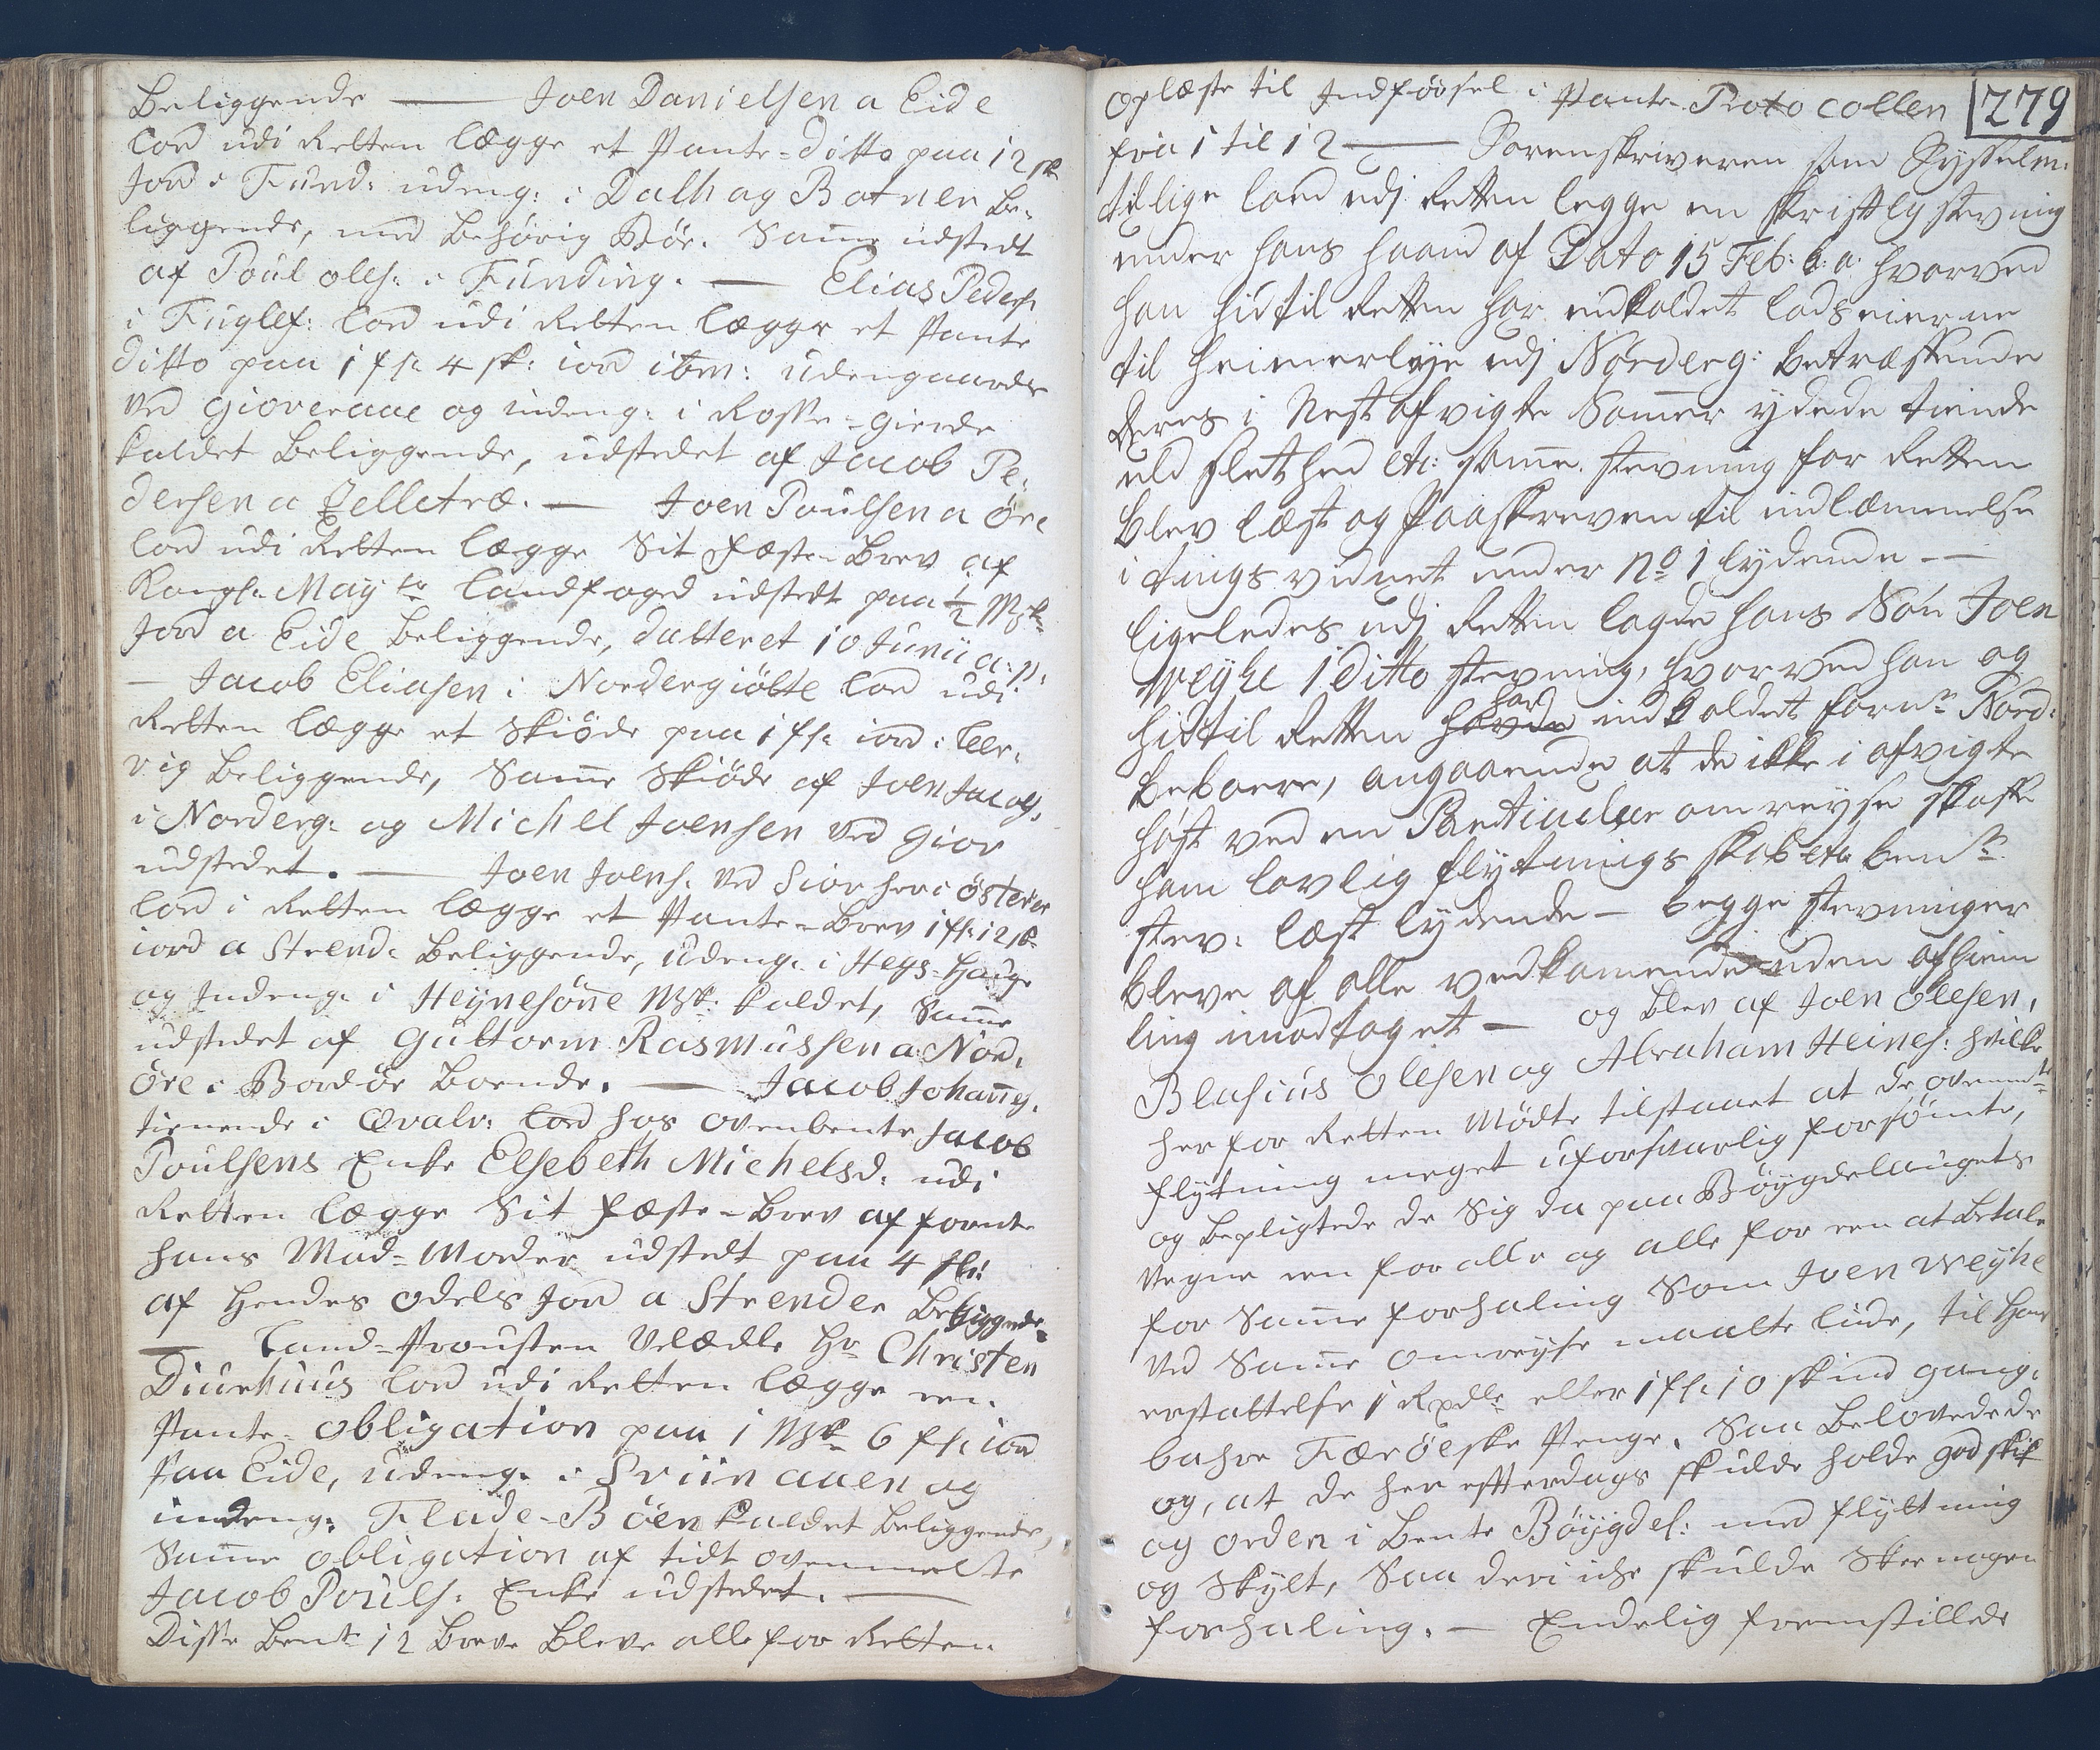 Beliggende — Joen Danielsen a Eide
lod udi Retten lægge et Pante-Ditto paa 12 sk
Jord i Fund: udeng: i Dalh og Botnen be-
liggende, med behørig Bøe. Samme udstedt
af Poul Oles: i Funding. — Elias Peders:
i Fuglef: lod udi Retten lægge et Pante
ditto paa 1 f. 4 sk: iord ibm: udengaards
ved Gioveraae og indeng: i Rosse-gierde
kaldet Beliggende, udstedet af Jacob Pe-
dersen a Zelletræ. — Joen Poulsen a Öre
lod udi Retten lægge Sit Fæste-Brev af
Kongl: May:ts Landfoged udstedt paa ½ Mk
Jord a Eide beliggende, datteret 10 Junii a: p:
— Jacob Eliasen i Nordergiöbte lod udi
Retten lægge et Skiöde paa 1 f: iord i Leer-
vig beliggende, Samme Skiöde af Joen Jacobs:
i Norderg: og Michel Joensen ved Giov
udstedet. — Joen Joens: ved Giov her i Österöe
lod i Retten lægge et Pante-Brev 1 f: 12 sk
iord a Strend: Beliggende, Udeng: i Hegs-Hauge
og Indeng: i Heynesönne Mk: kaldet, Samme
udstedet af Guttorm Rasmussen a Nord-
öre i Bordöe boende. — Jacob Johannes:
tienende i Qvalv: lod hos ovenbente Jacob
Poulsens Enke Elsebeth Michelsd: udi
Retten lægge Sit Fæste-Brev af forente
hans Mad-Moder udstedt paa 4 sk:
af Hendes Odels Jord a Strender Beliggende.
— Land-Prousten Velædle Hr Christen
Diurhuus lod udi Retten lægge een
Pante-Obligation paa 1 Mk 6 f: iord
Paa Eide, udeng: i Sviin aaen og
indeng: Flade-Böen kaldet beliggende,
Samme Obligation af tidt ovenmelte
Jacob Pouls: Enke udstedet. —
Disse bente 12 Breve bleve alle for Retten
oplæste til Indförsel i Pante-Protocollen 279
fra 1 til 12 — Sorenskriveren som Sysselm:
tillige lod udj Retten legge en skriftlig stevning
under hans Haand af Dato 15 Feb: h: a: hvorved
han hid til Retten har indkaldet Lodseierne
til Heimerlye udj Norderg: betræffende
deres i Nest afvigte Sommer ydede tiende
uld slethed etc: samme stevning for Retten
blev læst og paaskreven til indlæmmelse
i tingsvidnet under No 1 lydende —
ligeledes udj Retten lagde hans Søn Joen
Weyhe 1 ditto stevning, hvorved han og
hidtil Retten havde har indkaldet forne Nord:
beboere, angaaende at de ikke i afvigte
høst ved en Particulær omreyse skaffe
ham lovlig flytnings skib etc: bente
stev: læst lydende — begge stevninger
bleve af alle vedkommende uden afhiem
ling imodtaget — og blev af Joen Olesen,
Blasius Olesen og Abraham Heines: hvilke
her for Retten Mödte tilstaaet at de ovennte
flytning meget uforsvarlig forsömte,
og bepligtede de Sig da paa Böygdelaugets
Vegne een for alle og alle for een at betale
for Samme forhaling Som Joen Weyhe
ved Samme omreyse maatte lide, til Hans
erstattelse 1 Rxdlr eller 1 f: 10 skind gang-
bahre Færöeske Penge. Saa Belovede de
og, at de her effterdags skulde holde god skik
og orden i bente Böygdel: med flyttning
og Skyds, Saa deri icke skulde Skee nogen
forhaling. — Endelig fremstillede